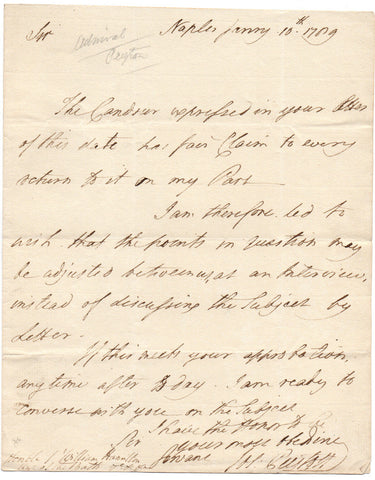 Sir Naples Janry 10th. 1789
Admiral
Peyton
The Candour expressed in your Letter
of this date has fair Claim to every
return to it on my Part
I am therefore led to
wish that the points in question may
be adjusted between us, at an Interview,
instead of discussing the Subject by
Letter.
If this meets your approbation,
any time after to day. I am ready to
converse with you on the Subject
I have the Honor to be
Sir your most obedient
Servant
Honble Sr William Hamilton